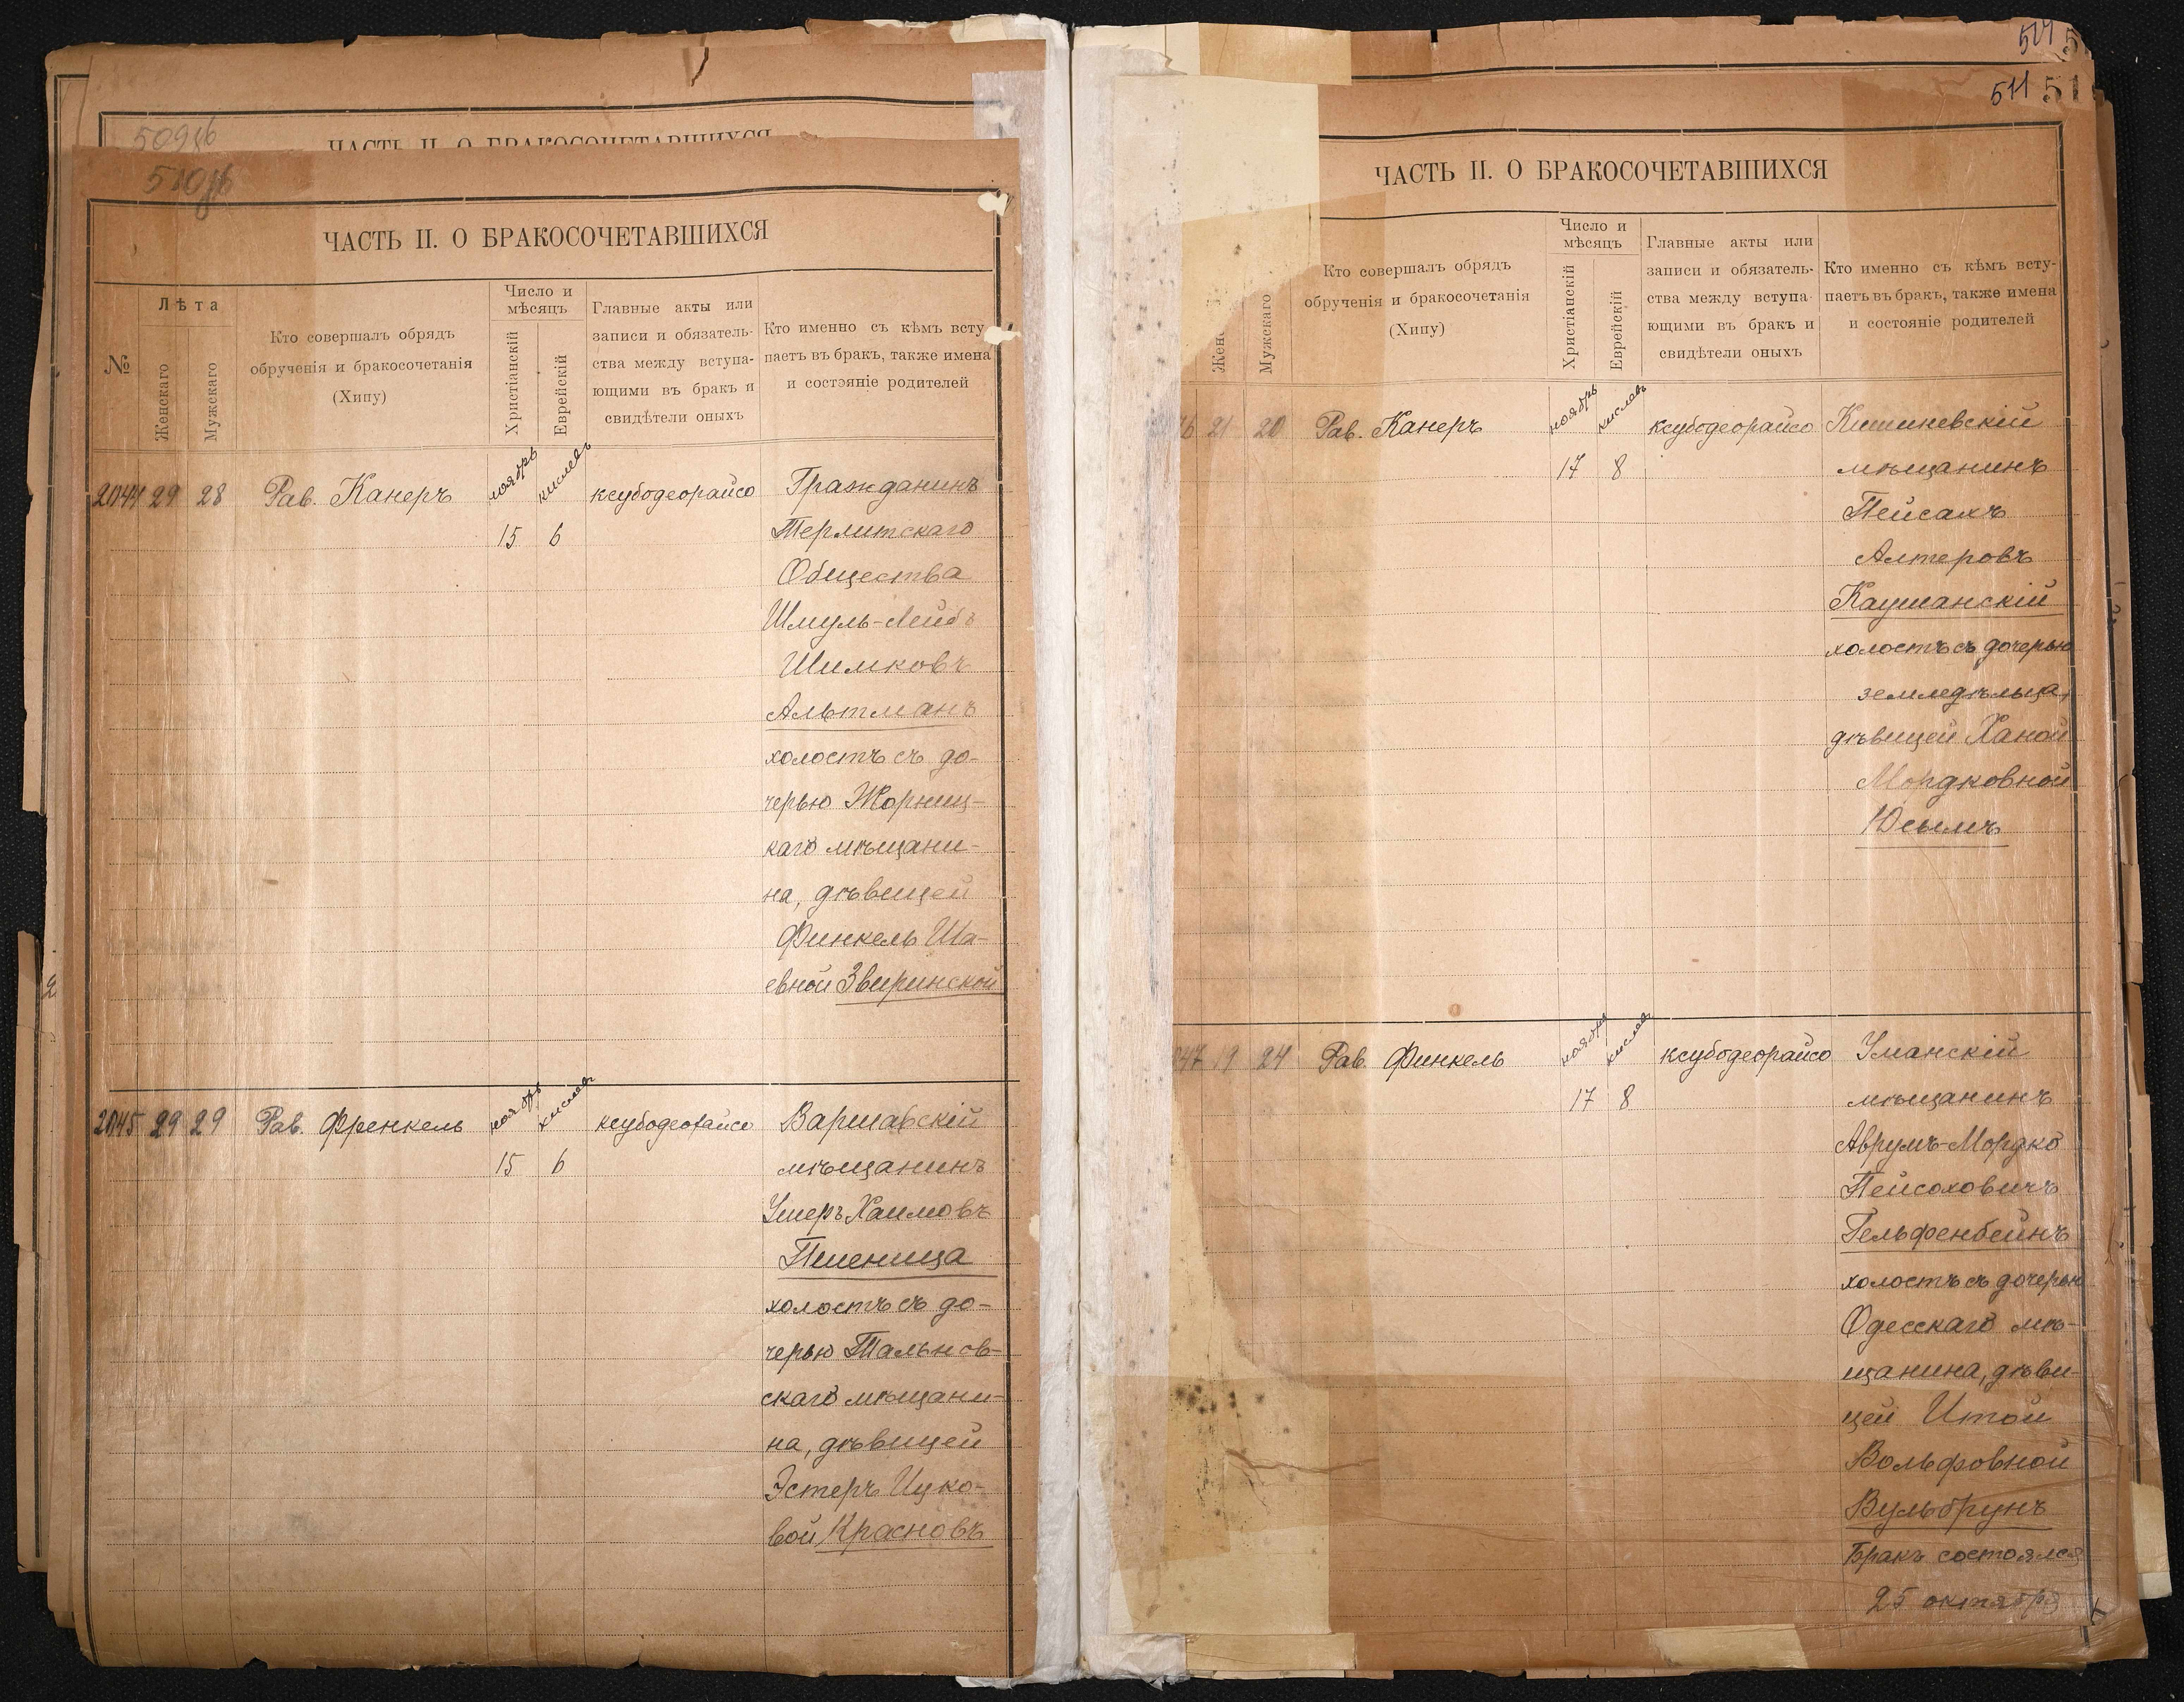 509об
ЧАСТЬ II. О БРАКОСОЧЕТАВШИХСЯ
510об
ЧАСТЬ II. О БРАКОСОЧЕТАВШИХСЯ
№
Лѣта
Женскаго
Мужскаго
Кто совершалъ обрядъ
обрученія и бракосочетанія
(Хипу)
Число и
мѣсяцъ
Христіанскій
Еврейскій
Главные акты или
записи и обязатель-
ства между вступа-
ющими въ бракъ и
свидѣтели оныхъ
Кто именно съ кѣмъ всту
паетъ въ бракъ, также имена
и состояніе родителей
2044 29 28 Рав. Канеръ ноябрь кислевъ ксубодеорайсо Гражданинъ
15 6 Терлитскаго
Общества
Шмуль-Лейбъ
Шимковъ
Альтманъ
холостъ съ до-
черью Жорнищ-
каго мѣщани-
на, дѣвицей
Финкель Ша-
евной Зверинской
2045 29 29 Рав. Френкель ноябрь кислевъ ксубодеорайсо Варшавскій
15 6 мѣщанинъ
Ушеръ Хаимовъ
Пшеница
холостъ съ до-
черью Тальнов-
скаго мѣщани-
на, дѣвицей
Эстеръ Ицко-
вой Красновъ
514
511 51
ЧАСТЬ II. О БРАКОСОЧЕТАВШИХСЯ
Жен
Мужскаго
Кто совершалъ обрядъ
обрученія и бракосочетанія
(Хипу)
Число и
мѣсяцъ
Христіанскій
Еврейскій
Главные акты или
записи и обязатель-
ства между вступа
ющими въ бракъ и
свидѣтели оныхъ
Кто именно съ кѣмъ всту-
паетъ въ бракъ, также имена
и состояніе родителей
46 21 20 Рав. Канеръ ноябрь кислевъ ксубодеорайсо Кишиневскій
17 8 мѣщанинъ
Пейсахъ
Алтеровъ
Каушанскій
холостъ съ дочерью
земледѣльца,
дѣвицей Ханой
Мордковной
Юсымъ
047 19 24 Рав. Финкель ноября кислевъ ксубодеорайсо Уманскій
17 8 мѣщанинъ
Аврумъ-Мордко
Пейсоховичъ
Гельфенбейнъ
холостъ съ дочерью
Одесскаго мѣ-
щанина, дѣви-
цей Итой
Вольфовной
Вульбрунъ
Бракъ состоялся
25 октября